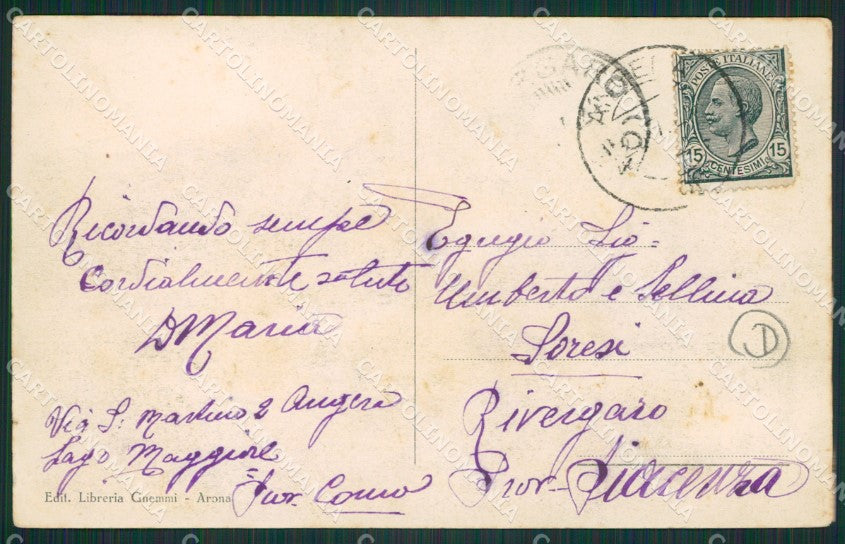 Ricordando sempre
Cordialmente saluto
D Maria
Via S: Martino 2 Angera
Lago Maggiore
Prov. Como
Edit. Libreria Gnemmi - Arona
POSTE ITALIANE
15 15
CENTESIMI
Egregio Sio=
Umberto e Sellina
Soresi
Rivergaro
Prov- Piacenza
D
CARTOLINOMANIA